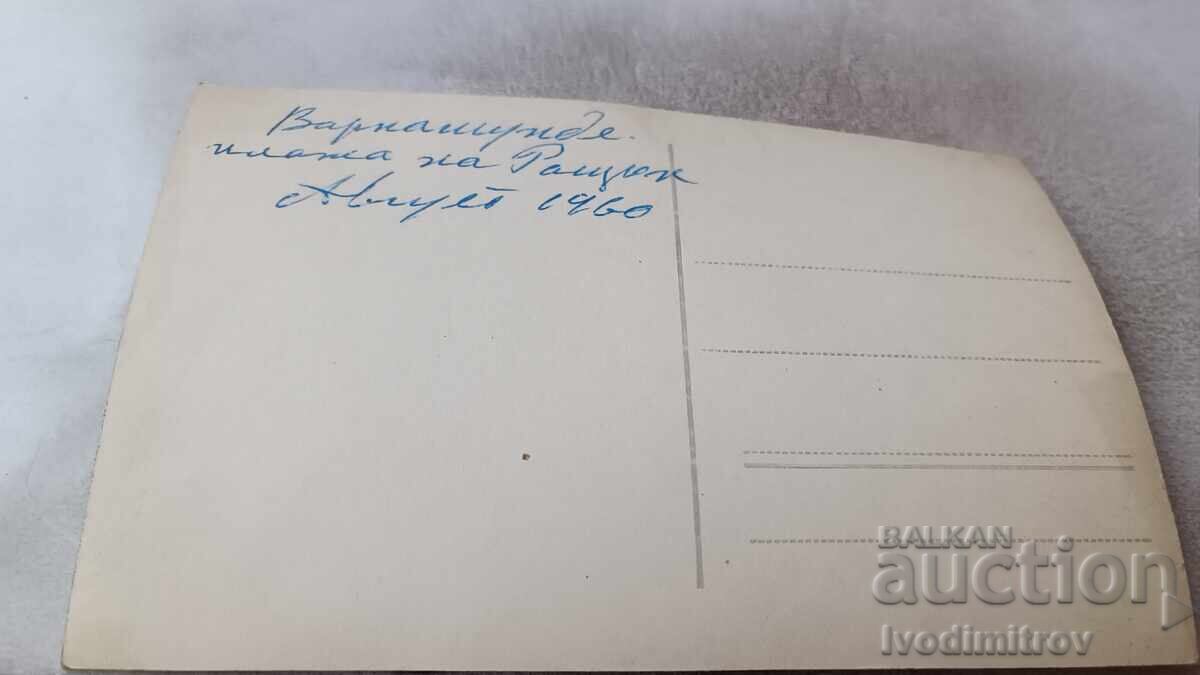 Варнамунде.
плажа на Рощок
Август 1960
BALKAN
auction
Ivodimitrov